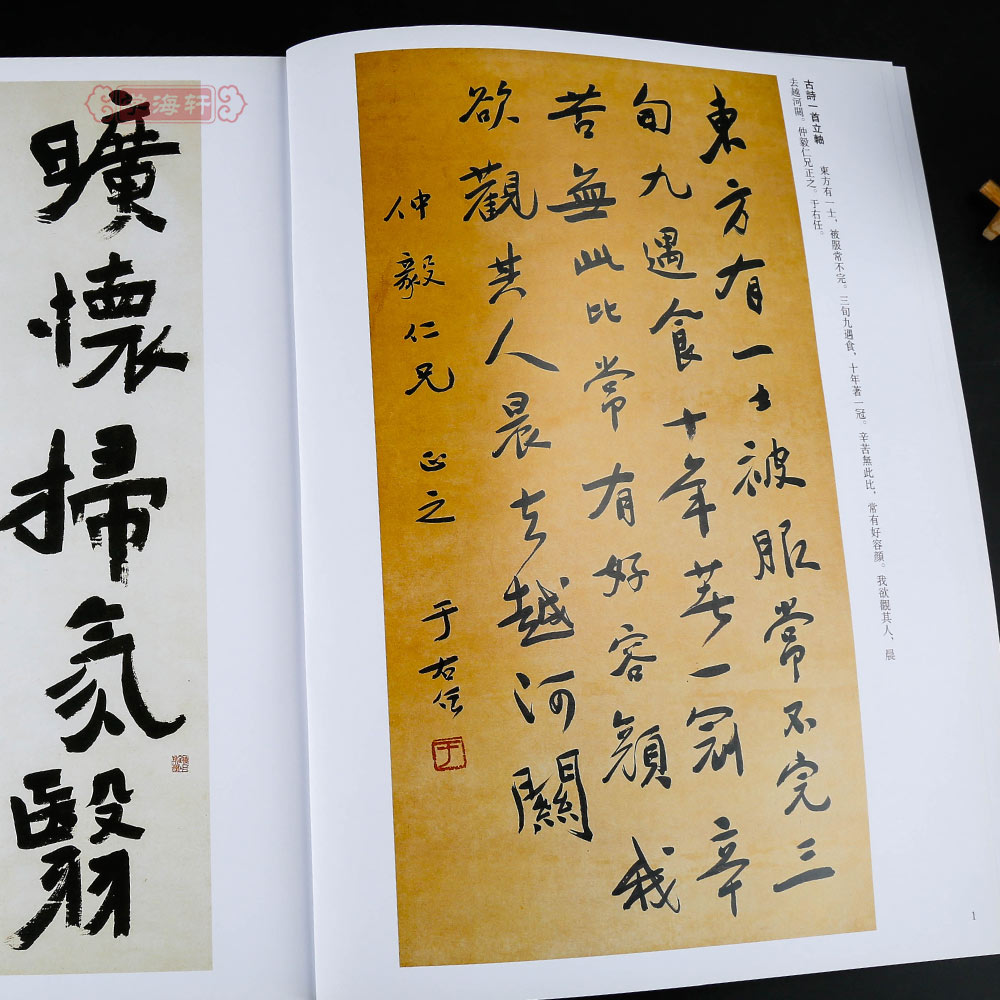 古詩一首立軸 東方有一士，被服常不完。三旬九遇食，十年著一冠。辛苦無此比，常有好容顏。我欲觀其人，晨
去越河關。仲毅仁兄正之。于右任。
東方有一士被服常不完三
旬九遇食十年著一冠辛
苦無此比常有好容顏我
欲觀其人晨去越河關
仲毅仁兄正之 于右任
于
1
曠懷掃氛翳
海轩